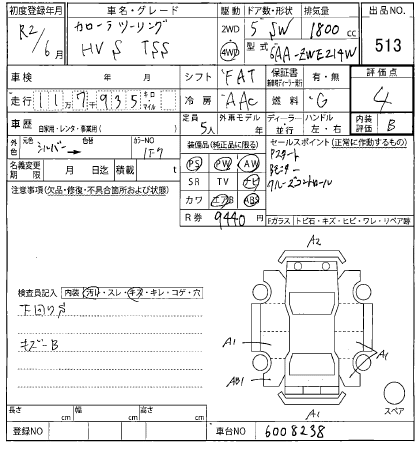 初度登録年月 車名・グレード 駆動 ドア数・形状 排気量 出品NO.
R2/6月 カローラツーリング HV S TSS 2WD 4WD 5D SW 1800cc 513
型式 6AA-ZWE214W
車検 年 月 シフト FAT 保証書 有・無 評価点 4
走行 117935 キロ マイル 冷房 AAC 燃料 G ハンドル 左・右
車歴 自家用・レンタ・事業用( ) 定員 5人 外車モデル 年 ディーラー 並行 内装評価 B
外色 元色 シルバー 色替 カラーNO 1F7
装備品(純正品に限る) セールスポイント(正常に作動するもの)
名義変更期限 月 日迄 積載 t
PS PW AW Pスタート
SR TV ナビ Bモニター
カワ エアB ABS クルーズコントロール
R券 9440円
注意事項(欠品・修復・不具合箇所および状態)
Fガラス トビ石・キズ・ヒビ・ワレ・リペア跡
検査員記入 内装 汚れ・スレ・キズ・キレ・コゲ・穴
下回りS
キズーB
A2
A1
A1
AB1
A1
スペア
長さ cm 幅 cm 高さ cm
登録NO 車台NO 6008238